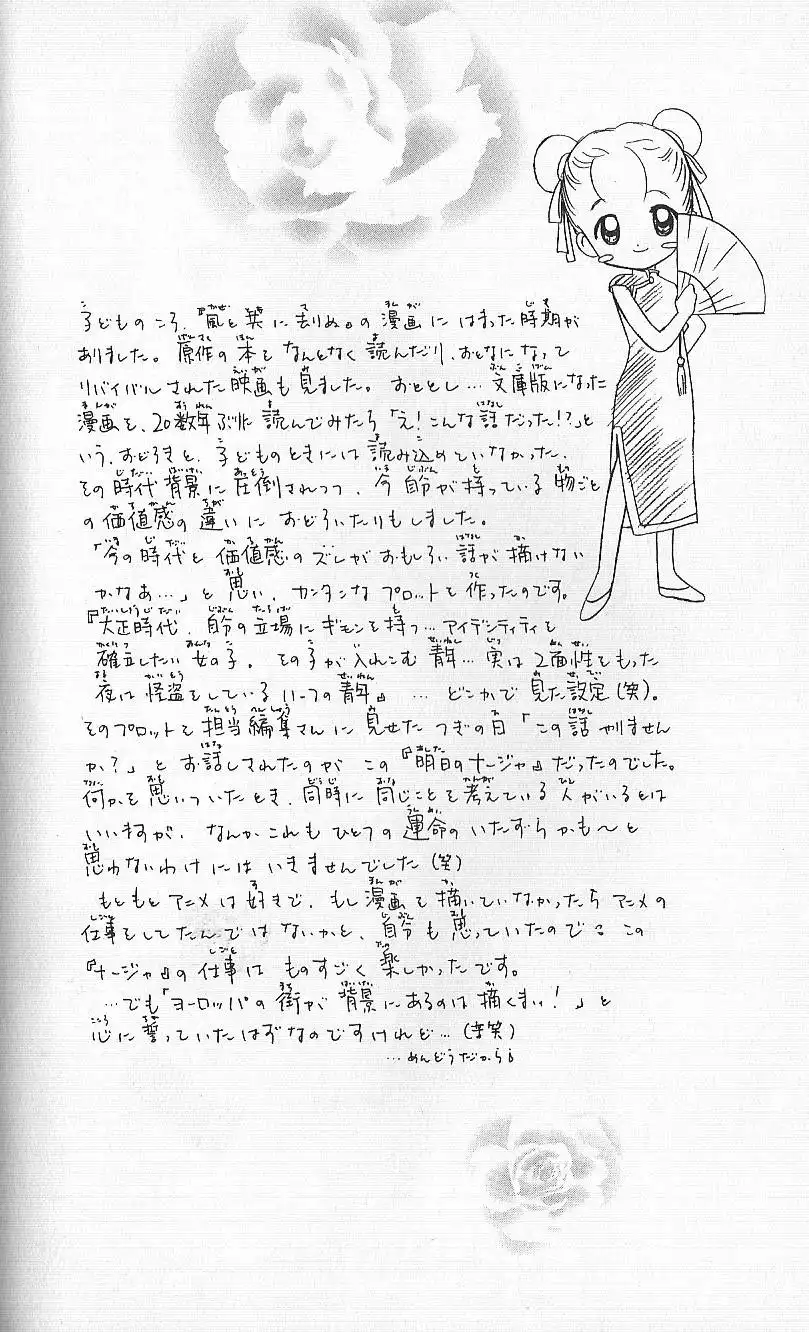 子どものころ、『風と共に去りぬ』の漫画にはまった時期が
ありました。原作の本をなんとなく読んだり、おとなになって
リバイバルされた映画も見ました。おととし…文庫版になった
漫画を、20数年ぶりに読んでみたら「え!こんな話だった!?」と
いう、おどろきと、子どものときには読み込めていなかった、
その時代背景に圧倒されつつ、今自分が持っている物ごと
の価値感の違いにおどろいたりもしました。
「今の時代と価値感のズレがおもしろい話が描けない
かなあ…」と思い、カンタンなプロットを作ったのです。
『大正時代、自分の立場にギモンを持つ…アイデンティティを
確立したい女の子。その子が入れこむ青年…実は2面性をもった
夜は怪盗をしているハーフの青年』…どこかで見た設定(笑)。
そのプロットを担当編集さんに見せたつぎの日「この話やりません
か?」とお話しされたのがこの『明日のナージャ』だったのでした。
何かを思いついたとき、同時に同じことを考えている人がいるとは
いいますが、なんかこれもひとつの運命のいたずらかも〜と
思わないわけにはいきませんでした(笑)
もともとアニメは好きで、もし漫画を描いていなかったらアニメの
仕事をしてたんではないかと、自分も思っていたのでここの
『ナージャ』の仕事はものすごく楽しかったです。
…でも「ヨーロッパの街が背景にあるのは描くまい!」と
心に誓っていたはずなのですけれど…(苦笑)
…めんどうだから